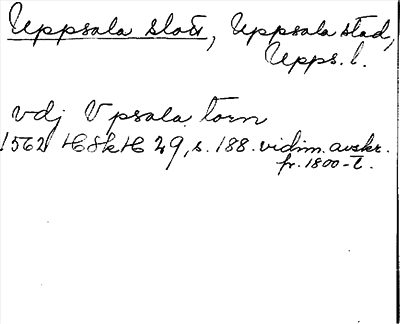 Uppsala slott, Uppsala stad,
Upps. l.
vdj Vpsala torn
1562 HSkH 29, s. 188. vidim. avskr.
fr. 1800-t.